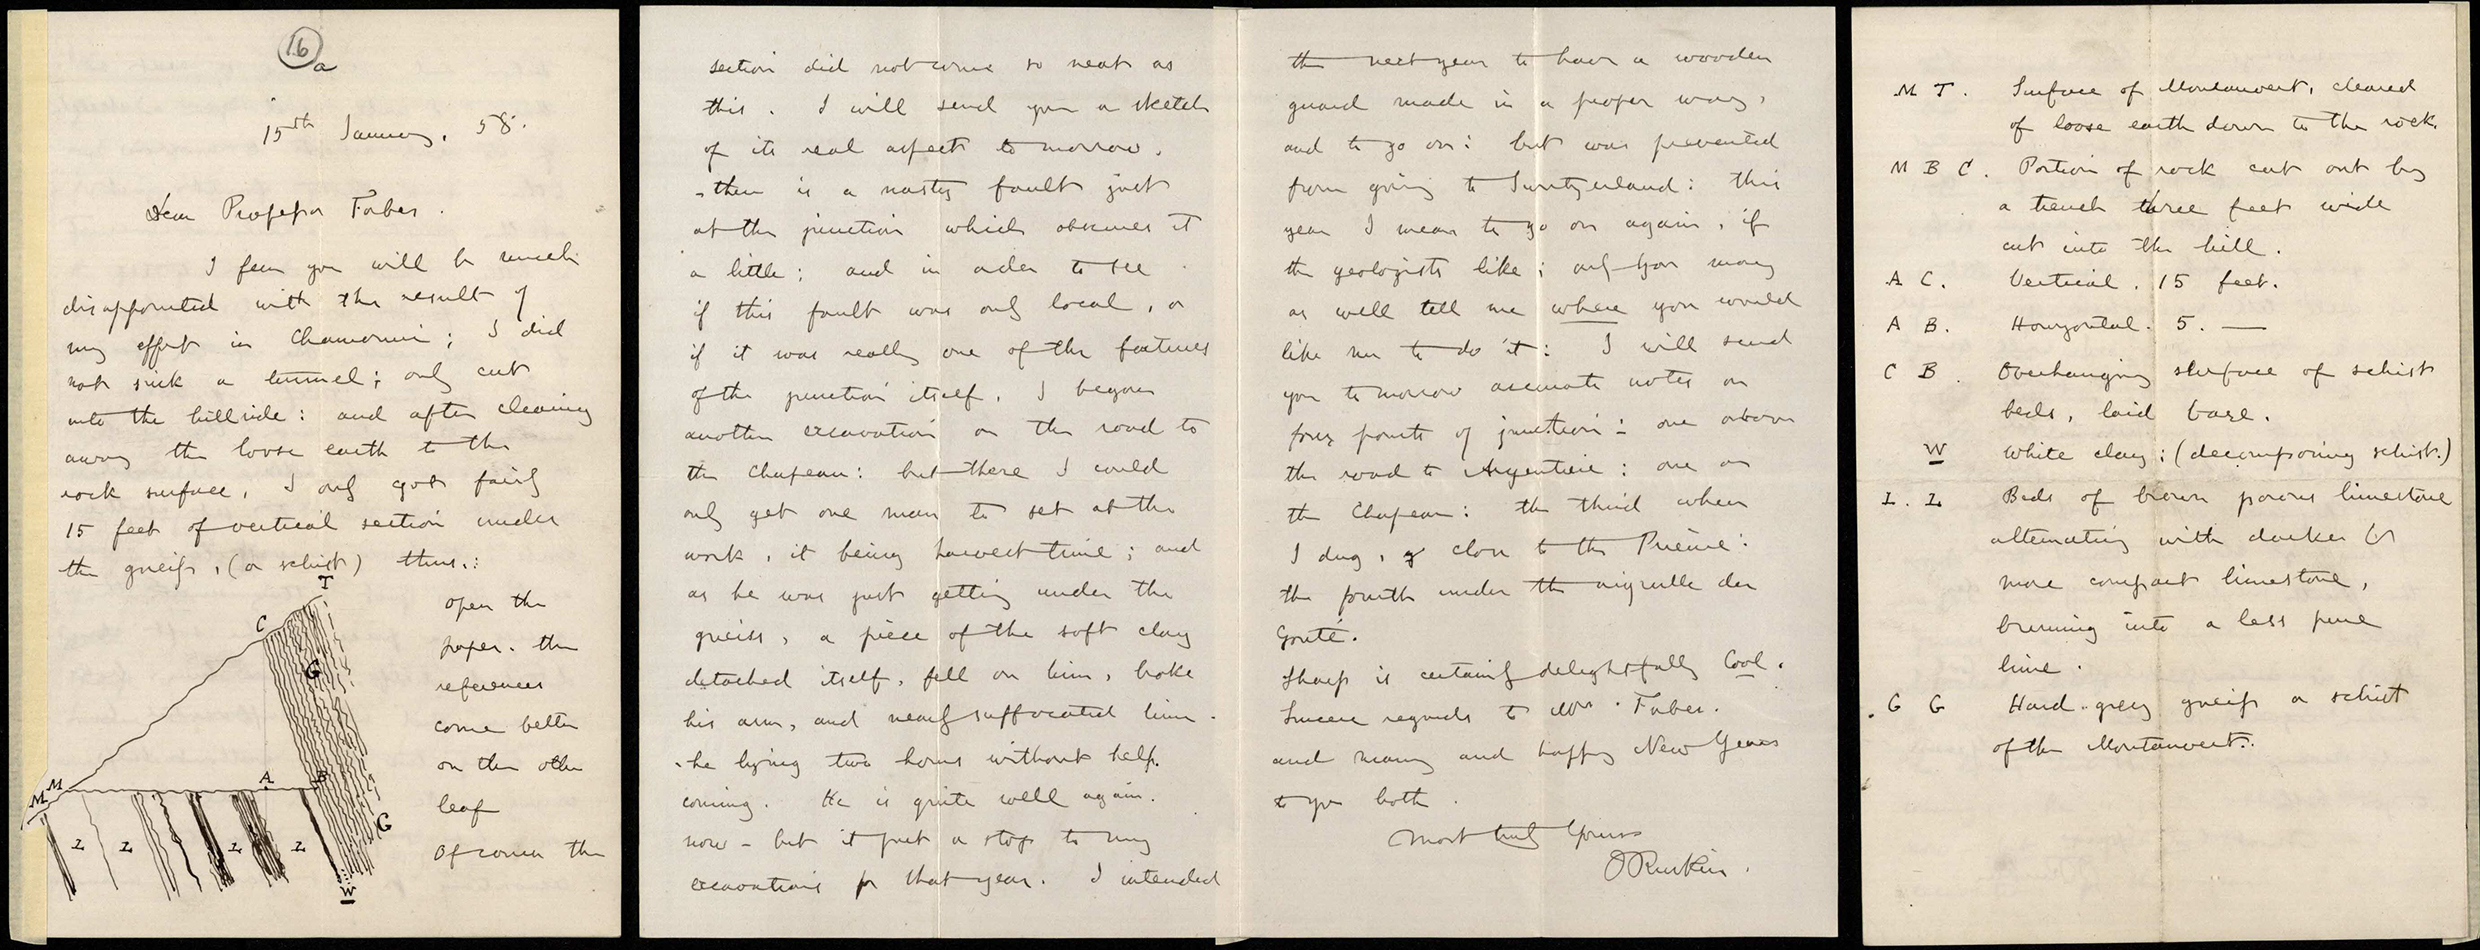 16
a
15th January. 58.
Dear Profeſsor Forbes.
I fear you will be much
disappointed with the result of
my effort in Chamouni; I did
not sink a tunnel; only cut
into the hillside: and after clearing
away the loose earth to the
rock surface, I only got fairly
15 feet of vertical section under
the gneiſs, (or schist) thus.:
T
C
G
M M
A
B
G
L
L
L
L
W
open the
paper. the
references
come better
on the other
leaf
Of course the
section did not come so neat as
this. I will send you a sketch
of its real aspect tomorrow.
there is a nasty fault just
at the junction which obscures it
a little; and in order to see
if this fault was only local, or
if it was really one of the features
of the junction itself, I began
another excavation on the road to
the Chapeau: but there I could
only get one man to set at the
work, it being harvest time; and
as he was just getting under the
gneiss, a piece of the soft clay
detached itself, fell on him, broke
his arm, and nearly suffocated him.
he lying two hours without help
coming. He is quite well again.
now - but it put a stop to my
excavations for that year. I intended
the next year to have a wooden
guard made in a proper way,
and to go on: but was prevented
from going to Switzerland: this
year I mean to go on again, if
the geologists like; only you may
as well tell me where you would
like me to do it: I will send
you tomorrow accurate notes on
four points of junction: one above
the road to Argentiere: one on
the Chapeau: the third where
I dug, close to the
the fourth under the aiguille der
Gouté.
Sharp is certainly delightfully Cool.
Sincere regards to Mrs. Forbes.
and many and happy New Years
to you both.
Most truly Yours
J Ruskin.
M T. Surface of Montanvert, cleared
of loose earth down to the rock.
M B C. Portion of rock cut out by
a trench three feet wide
cut into the hill.
A C. Vertical. 15 feet.
A B. Horizontal. 5. —
C B. Overhanging surface of schist
beds, laid bare.
W white clay; (decomposing schist.)
L. L Beds of brown porous limestone
alternating with darker &
more compact limestone,
burning into a less pure
lime.
G G Hard grey gneiſs or schist
of the Montanvert.